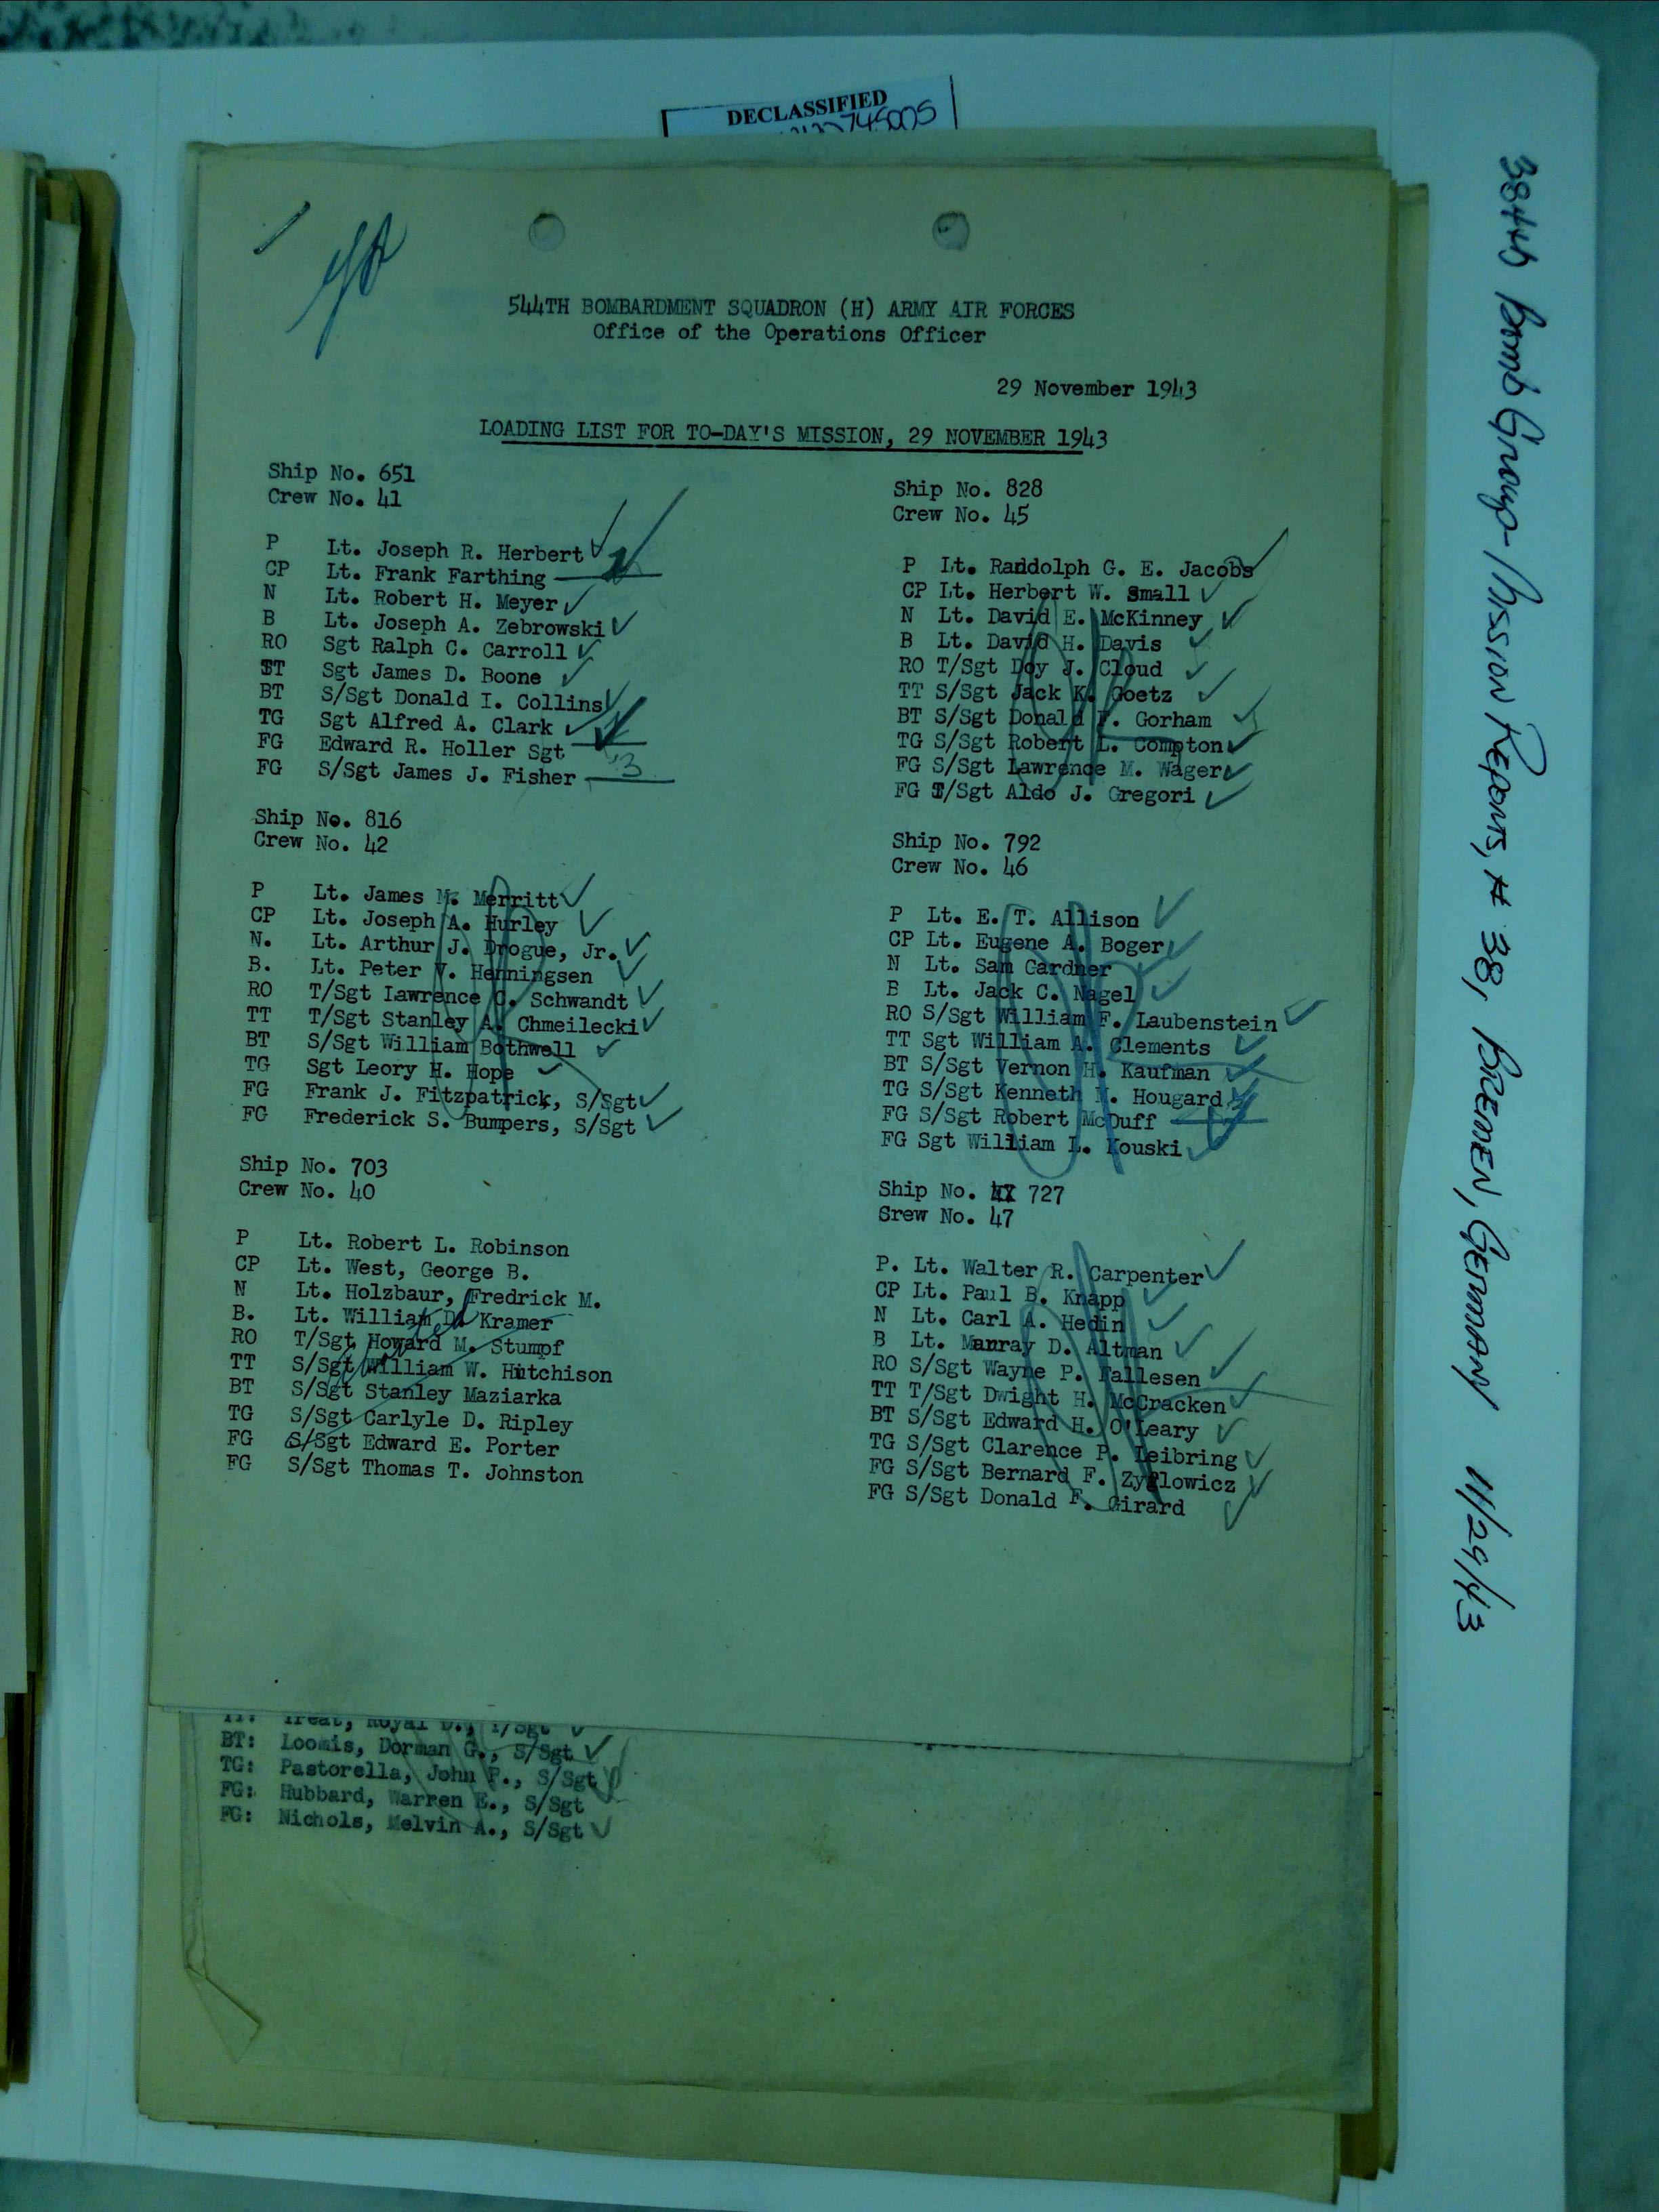 DECLASSIFIED
745005
544TH BOMBARDMENT SQUADRON (H) ARMY AIR FORCES
Office of the Operations Officer
29 November 1943
LOADING LIST FOR TO-DAY'S MISSION, 29 NOVEMBER 1943
Ship No. 651
Crew No. 41
P Lt. Joseph R. Herbert
CP Lt. Frank Farthing
N Lt. Robert H. Meyer
B Lt. Joseph A. Zebrowski
RO Sgt Ralph C. Carroll
TT Sgt James D. Boone
BT S/Sgt Donald I. Collins
TG Sgt Alfred A. Clark
FG Edward R. Holler Sgt
FG S/Sgt James J. Fisher 3
Ship No. 816
Crew No. 42
P Lt. James M. Merritt
CP Lt. Joseph A. Hurley
N. Lt. Arthur J. Drogue, Jr.
B. Lt. Peter V. Henningsen
RO T/Sgt Lawrence C. Schwandt
TT T/Sgt Stanley A. Chmeilecki
BT S/Sgt William Bothwell
TG Sgt Leory H. Hope
FG Frank J. Fitzpatrick, S/Sgt
FG Frederick S. Bumpers, S/Sgt
Ship No. 703
Crew No. 40
P Lt. Robert L. Robinson
CP Lt. West, George B.
N Lt. Holzbaur, Fredrick M.
B. Lt. William D. Kramer
RO T/Sgt Howard M. Stumpf
TT S/Sgt William W. Hutchison
BT S/Sgt Stanley Maziarka
TG S/Sgt Carlyle D. Ripley
FG S/Sgt Edward E. Porter
FG S/Sgt Thomas T. Johnston
Ship No. 828
Crew No. 45
P Lt. Randolph G. E. Jacobs
CP Lt. Herbert W. Small
N Lt. David E. McKinney
B Lt. David H. Davis
RO T/Sgt Doy J. Cloud
TT S/Sgt Jack K. Goetz
BT S/Sgt Donald F. Gorham
TG S/Sgt Robert L. Compton
FG S/Sgt Lawrence M. Wager
FG T/Sgt Aldo J. Gregori
Ship No. 792
Crew No. 46
P Lt. E. T. Allison
CP Lt. Eugene A. Boger
N Lt. Sam Gardner
B Lt. Jack C. Nagel
RO S/Sgt William F. Laubenstein
TT Sgt William A. Clements
BT S/Sgt Vernon H. Kaufman
TG S/Sgt Kenneth Hougard
FG S/Sgt Robert McDuff
FG Sgt William L. Kouski
Ship No. 727
Srew No. 47
P. Lt. Walter R. Carpenter
CP Lt. Paul B. Knapp
N Lt. Carl A. Hedin
B Lt. Murray D. Altman
RO S/Sgt Wayne P. Fallesen
TT T/Sgt Dwight H. McCracken
BT S/Sgt Edward H. O'Leary
TG S/Sgt Clarence P. Leibring
FG S/Sgt Bernard F. Zyglowicz
FG S/Sgt Donald F. Girard
TT: Treat, Royal D., T/Sgt
BT: Loomis, Dorman G., S/Sgt
TG: Pastorella, John P., S/Sgt
FG: Hubbard, Warren E., S/Sgt
FG: Nichols, Melvin A., S/Sgt
384th Bomb Group - Mission Reports, # 38, BREMEN, GERMANY 11/29/43